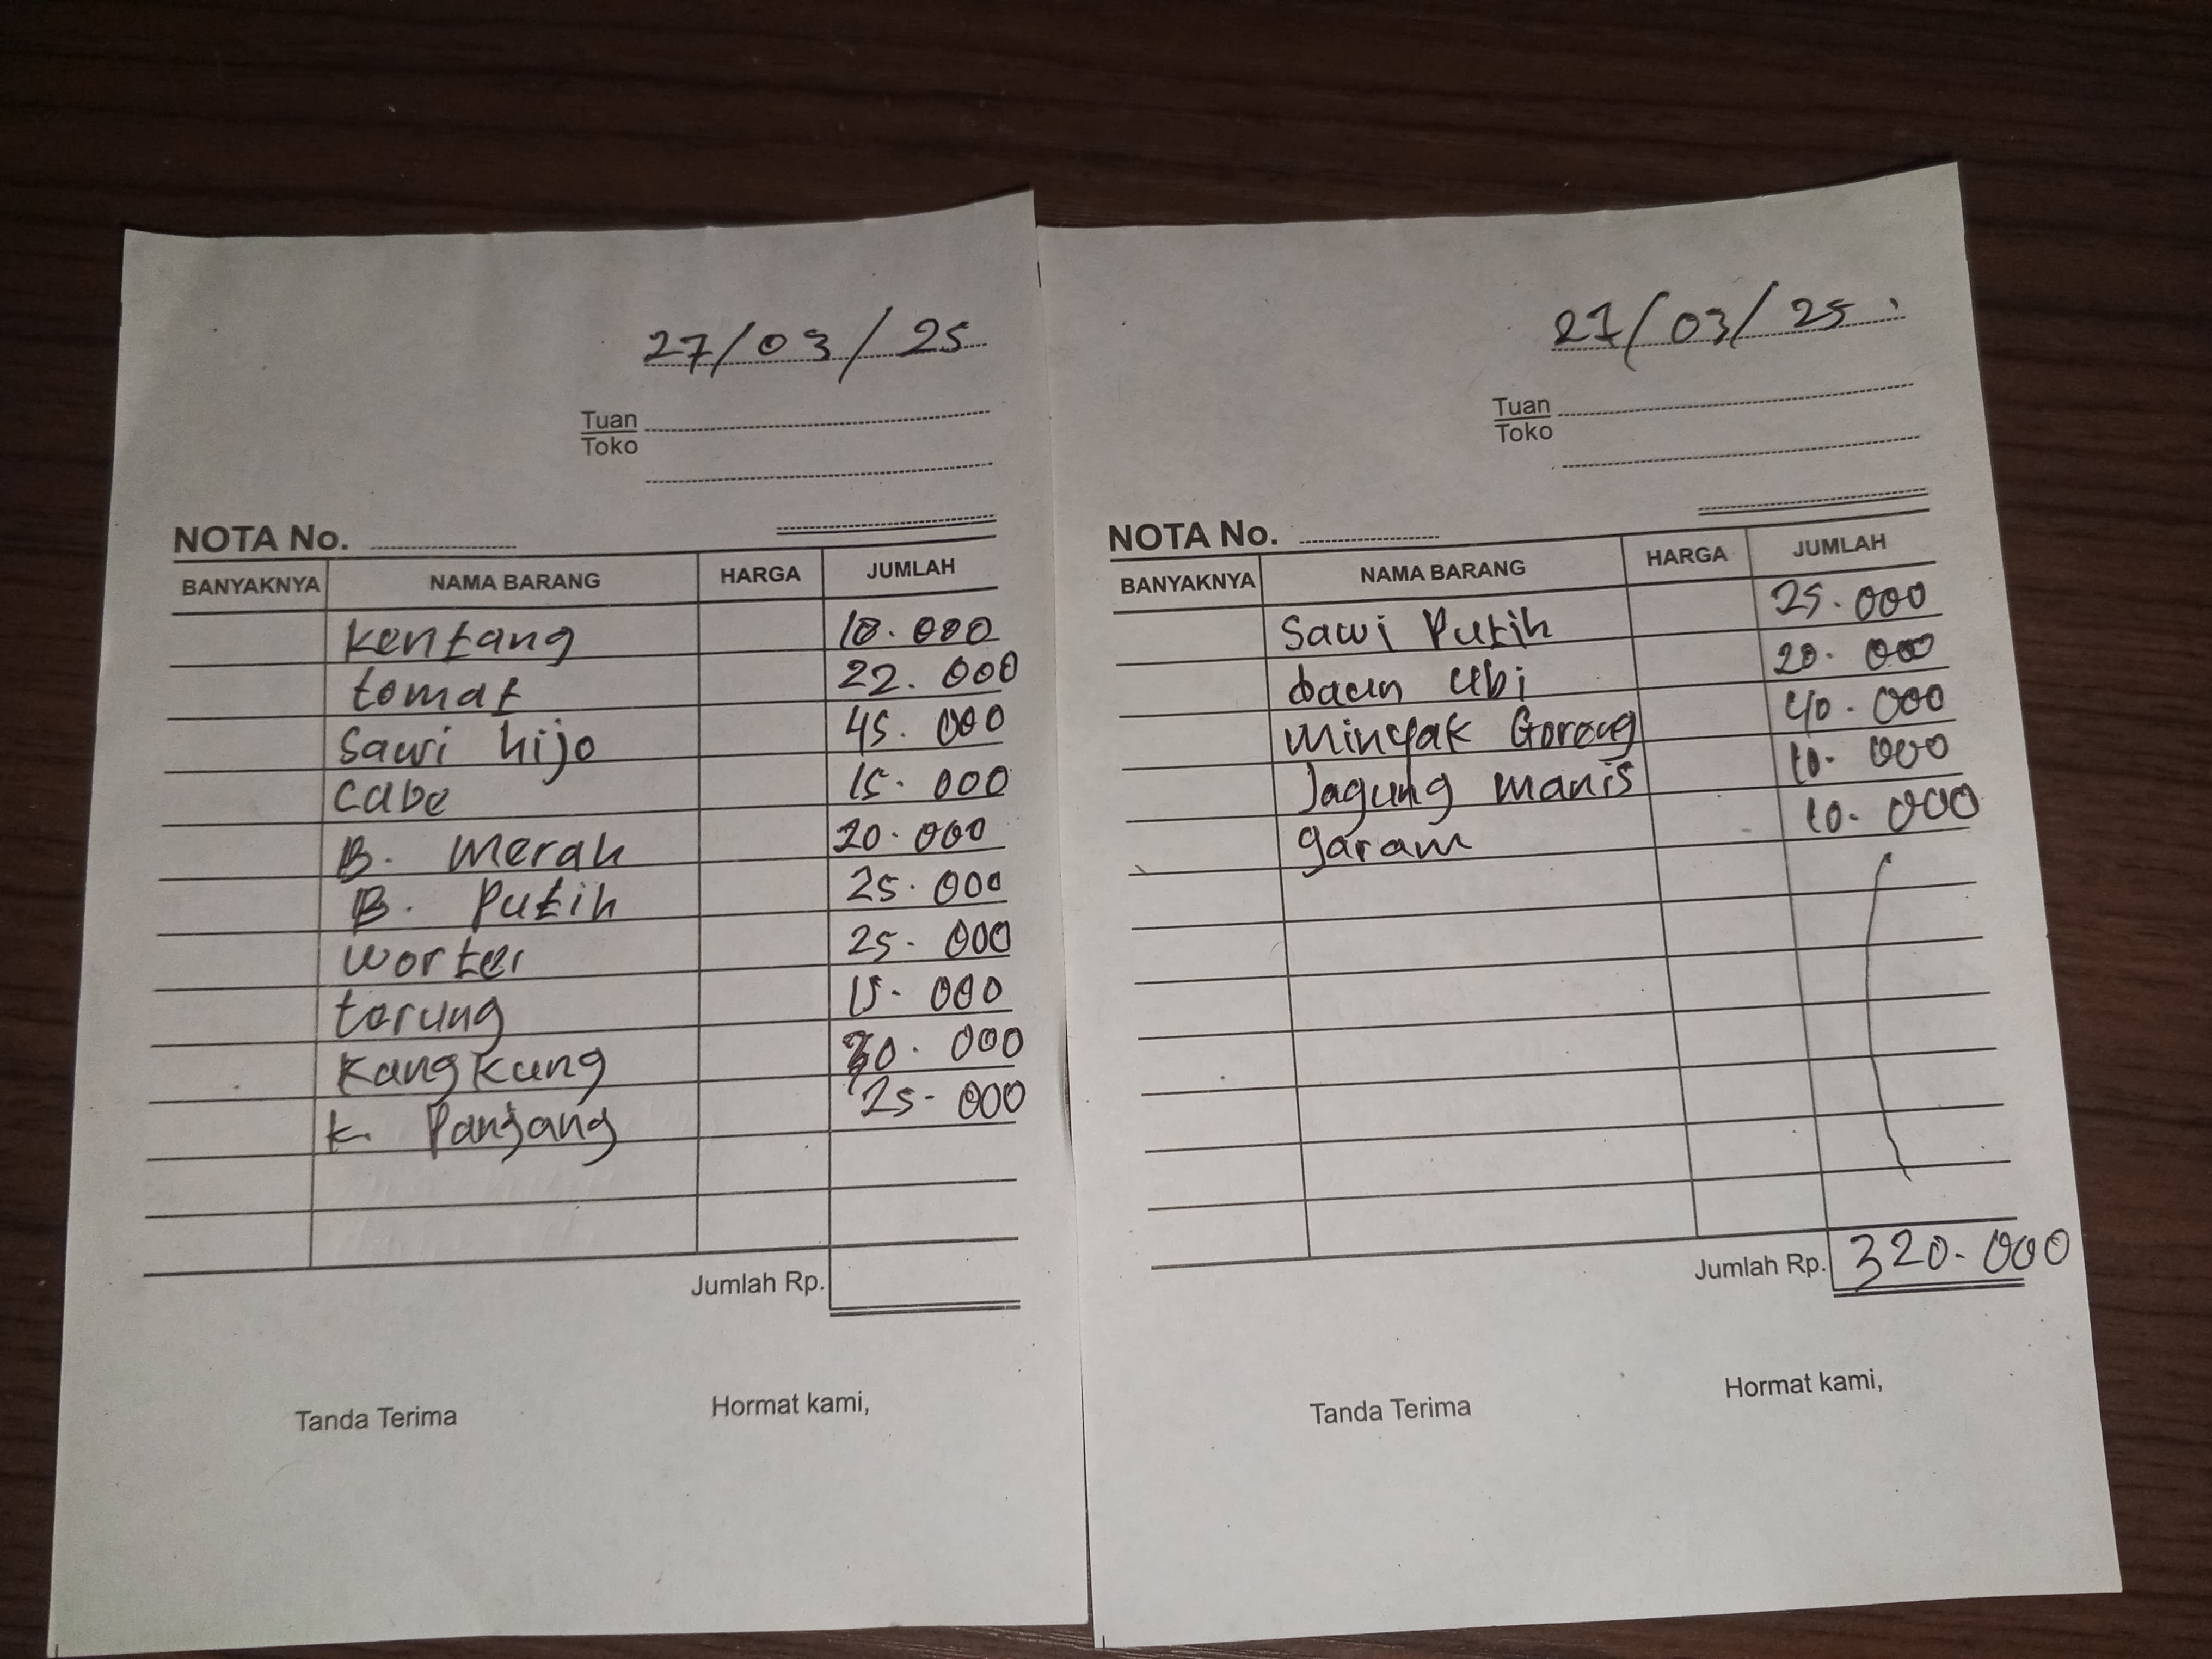 27/03/25
Tuan
Toko
NOTA No.
BANYAKNYA NAMA BARANG HARGA JUMLAH
kentang 18.000
tomat 22.000
Sawi hijo 45.000
Cabe 15.000
B. Merah 20.000
B. Putih 25.000
Worter 25.000
terung 15.000
Kangkung 30.000
K. Panjang 25.000
Jumlah Rp.
Tanda Terima Hormat kami,
27/03/25
Tuan
Toko
NOTA No.
BANYAKNYA NAMA BARANG HARGA JUMLAH
Sawi Putih 25.000
daun ubi 20.000
Minyak Goreng 40.000
Jagung manis 10.000
garam 10.000
Jumlah Rp. 320.000
Tanda Terima Hormat kami,